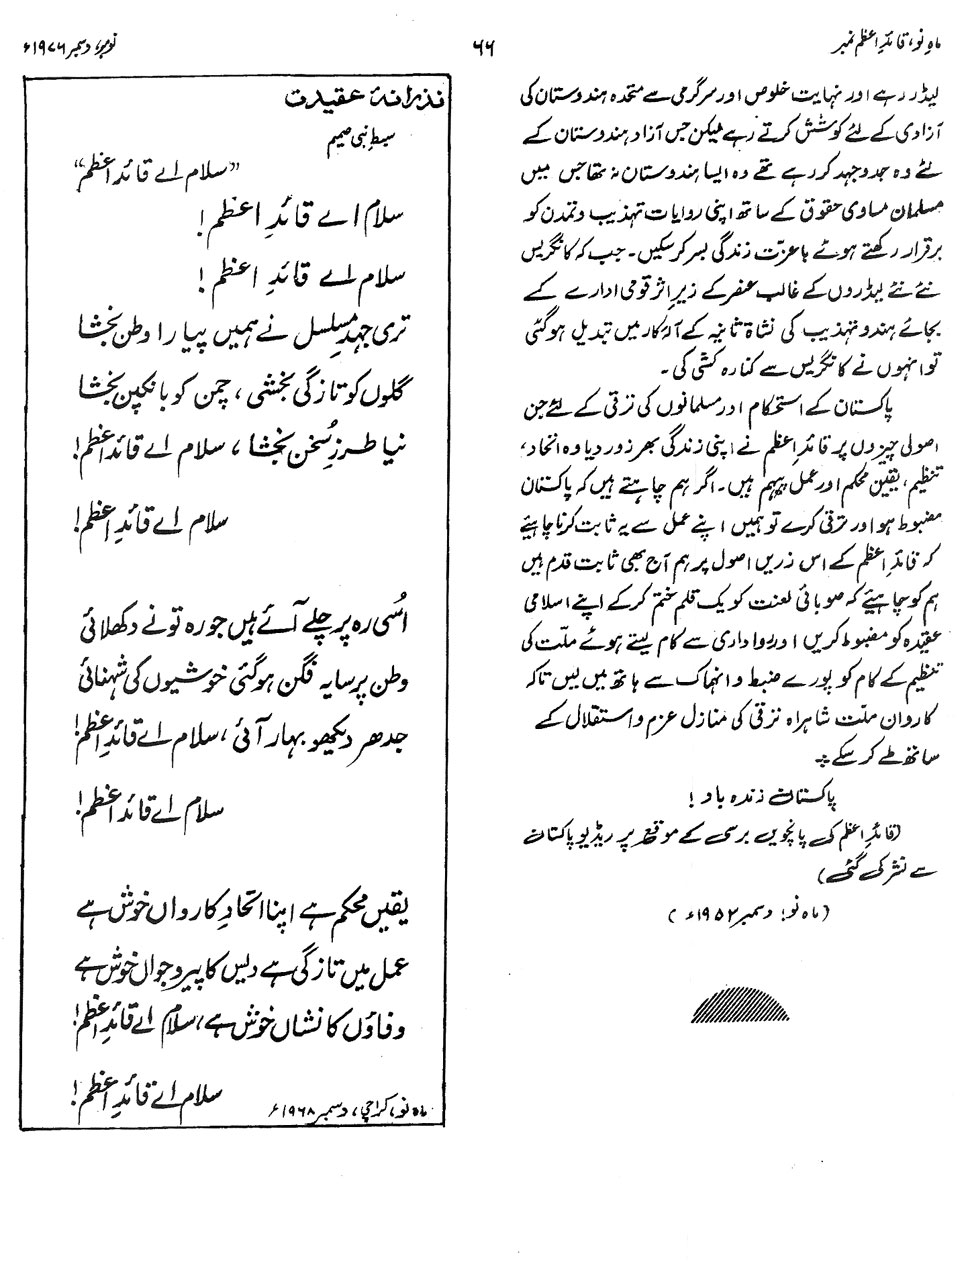 ماہِ نو، قائدِ اعظم نمبر
۶۶
نومبر، دسمبر ۱۹۷۶ء
لیڈر رہے اور نہایت خلوص اور سرگرمی سے متحدہ ہندوستان کی
آزادی کے لئے کوشش کرتے رہے لیکن جس آزاد ہندوستان کے
لئے وہ جدوجہد کر رہے تھے وہ ایسا ہندوستان نہ تھا جس میں
مسلمان مساوی حقوق کے ساتھ اپنی روایات تہذیب و تمدن کو
برقرار رکھتے ہوئے باعزّت زندگی بسر کر سکیں۔ جب کہ کانگریس
نئے نئے لیڈروں کے غالب عنصر کے زیرِ اثر قومی ادارے کے
بجائے ہندو تہذیب کی نشاۃ ثانیہ کے آلہ کار میں تبدیل ہو گئی
تو انہوں نے کانگریس سے کنارہ کشی کی۔
پاکستان کے استحکام اور مسلمانوں کی ترقی کے لئے جن
اصولی چیزوں پر قائدِ اعظم نے اپنی زندگی بھر زور دیا وہ اتحاد،
تنظیم، یقین محکم اور عمل پیہم ہیں۔ اگر ہم چاہتے ہیں کہ پاکستان
مضبوط ہو اور ترقی کرے تو ہمیں اپنے عمل سے یہ ثابت کرنا چاہیئے
کہ قائدِ اعظم کے اس زریں اصول پر ہم آج بھی ثابت قدم ہیں
ہم کو چاہیئے کہ صوبائی لعنت کو یک قلم ختم کر کے اپنے اسلامی
عقیدہ کو مضبوط کریں اور رواداری سے کام لیتے ہوئے ملّت کی
تنظیم کے کام کو پورے ضبط و انہماک سے ہاتھ میں لیں تاکہ
کاروان ملّت شاہراہ ترقی کی منازل عزم و استقلال کے
ساتھ طے کر سکے ❖
پاکستان زندہ باد!
(قائدِ اعظم کی پانچویں برسی کے موقع پر ریڈیو پاکستان
سے نشر کی گئی)
(ماہ نو؛ دسمبر ۱۹۵۲ء)
نذرانۂ عقیدت
سبطِ نبی صمیم
"سلام اے قائدِ اعظم"
سلام اے قائدِ اعظم!
سلام اے قائدِ اعظم!
تری جہدِ مسلسل نے ہمیں پیارا وطن بخشا
گلوں کو تازگی بخشی، چمن کو بانکپن بخشا
نیا طرزِ سُخن بخشا، سلام اے قائدِ اعظم!
سلام اے قائدِ اعظم!
اُسی رہ پر چلے آئے ہیں جو رہ تو نے دکھلائی
وطن پر سایہ فگن ہو گئی خوشیوں کی شہنائی
جدھر دیکھو بہار آئی، سلام اے قائدِ اعظم!
سلام اے قائدِ اعظم!
یقیں محکم ہے اپنا اتحادِ کارواں خوش ہے
عمل میں تازگی ہے دیس کا پیر و جواں خوش ہے
وفاؤں کا نشاں خوش ہے، سلام اے قائدِ اعظم!
سلام اے قائدِ اعظم!
ماہ نو، کراچی، دسمبر ۱۹۶۸ء